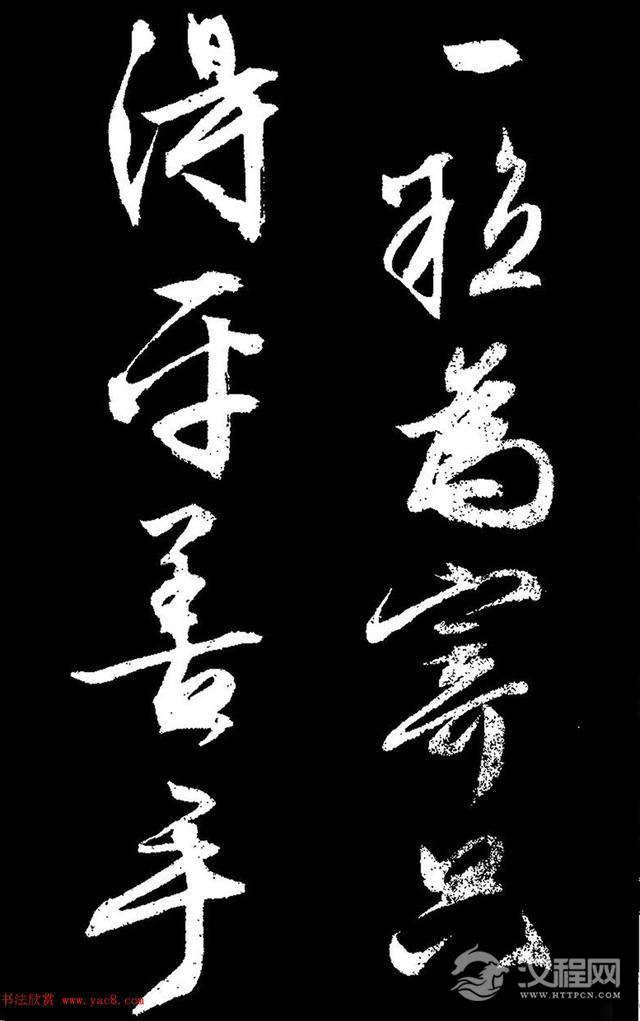 一為寄只
得平善手
书法欣赏 www.yac8.com
汉程网
WWW.HTTPCN.COM